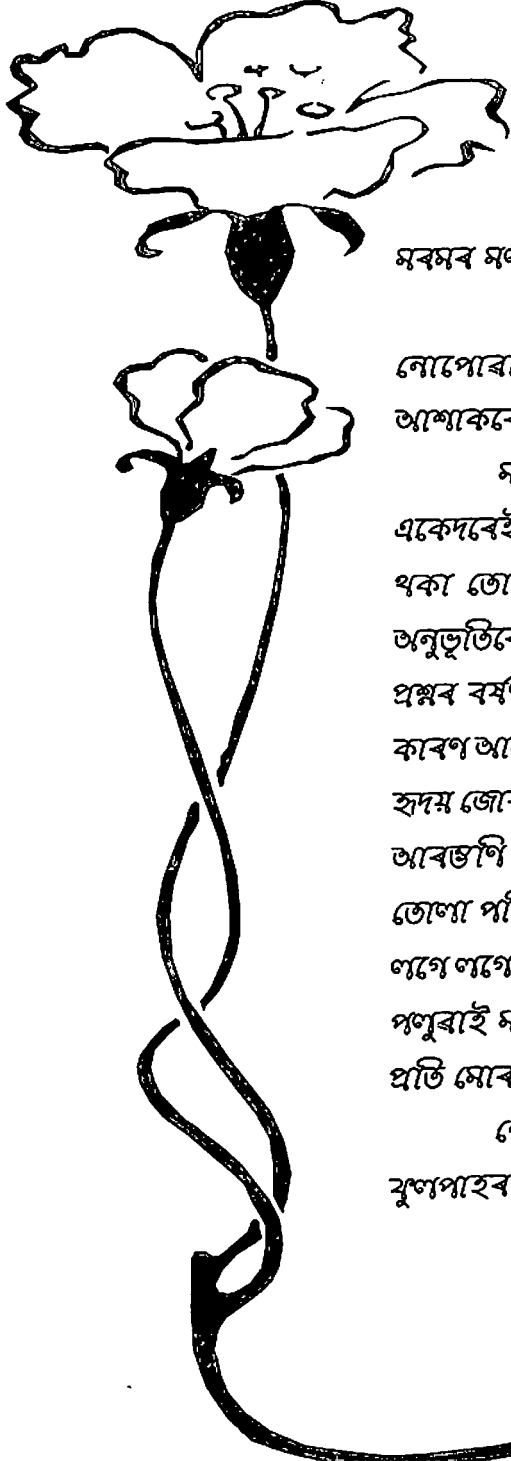 মৰমৰ
নোপোৱা
আশাকৰো
একেদৰেই
থকা তো
অনুভূতিৰে
প্ৰশ্নৰ বৰ্ষ
কাৰণ আ
হৃদয় জো
আৰম্ভণি
তোলা প
লগে লগে
পলুৱাই ম
প্ৰতি মোৰ
ফুলপাহৰ